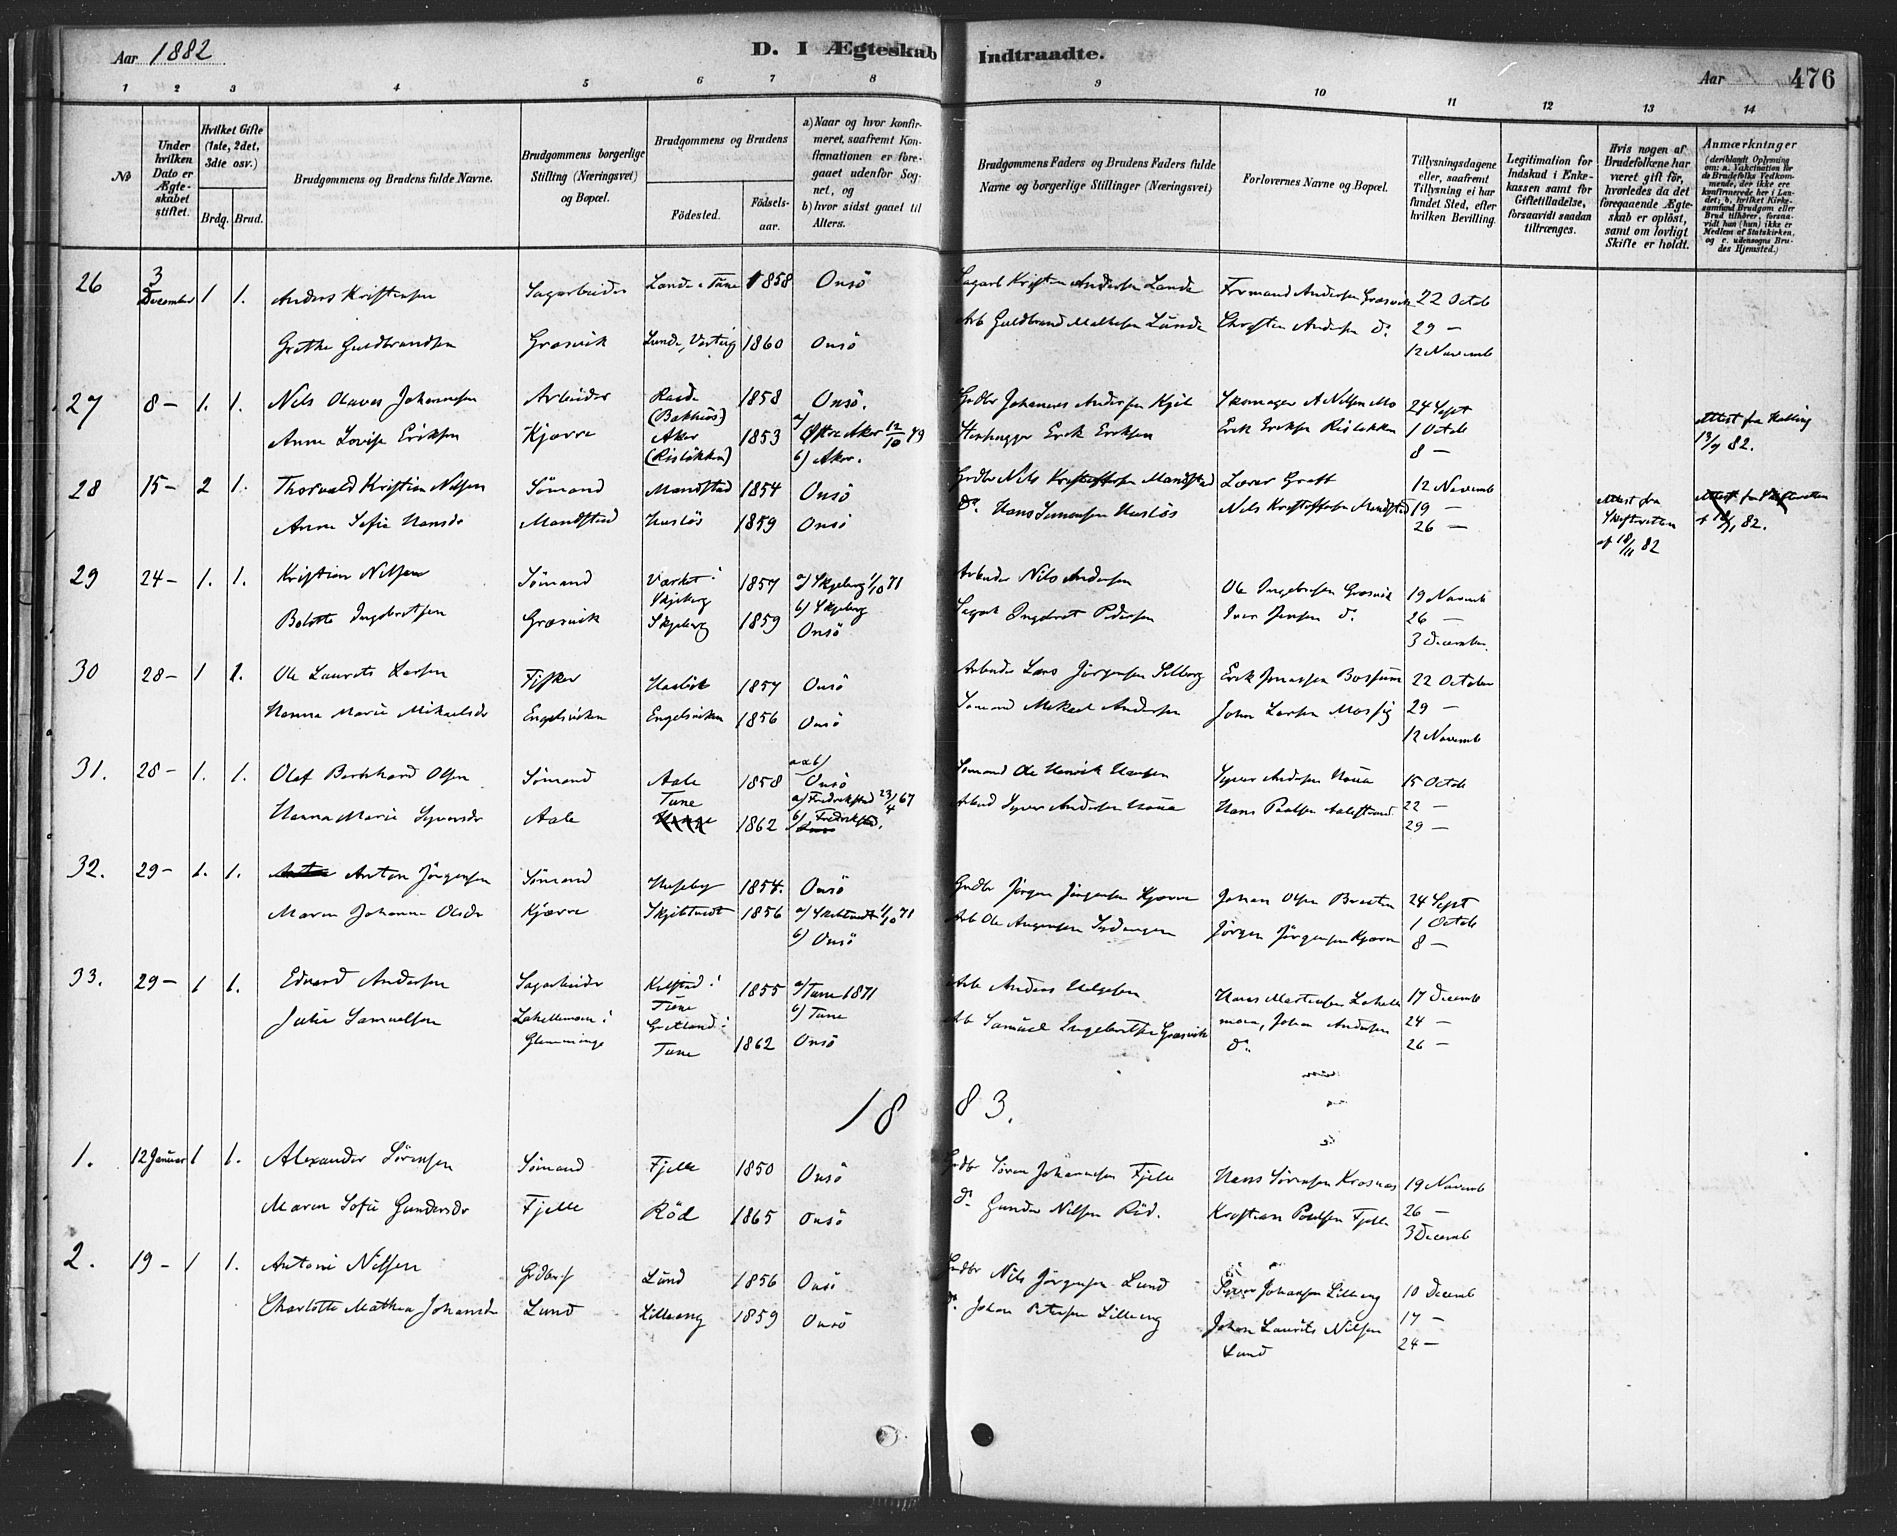 Aar 1882
D. I Ægteskab Indtraadte.
Aar 476
1 2 3 4 5 6 7 8 9 10 11 12 13 14
No
Under hvilken Dato er Ægteskabet stiftet.
Hvilket Gifte (1ste, 2det, 3die osv.)
Brdg. Brud.
Brudgommens og Brudens fulde Navne.
Brudgommens borgerlige Stilling (Næringsvei) og Bopæl.
Brudgommens og Brudens
Fødested.
Fødselsaar.
a) Naar og hvor konfirmeret, saafremt Konfirmationen er foregaaet udenfor Sognet, og
b) hvor sidst gaaet til Alters.
Brudgommens Faders og Brudens Faders fulde Navne og borgerlige Stillinger (Næringsvei)
Forlovernes Navne og Bopæl.
Tillysningsdagene eller, saafremt Tillysning ei har fundet Sted, efter hvilken Bevilling.
Legitimation for Indskud i Enkekassen samt for Giftetilladelse, forsaavidt saadan tiltrænges.
Hvis nogen af Brudefolkene har været gift før, hvorledes da det foregaaende Ægteskab er opløst, samt om lovligt Skifte er holdt.
Anmærkninger
(deriblandt Oplysning om: a. Vakcination for de Brudefolks Vedkommende, der ikke ere konfirmerede her i Landet; b. hvilket Kirkesamfund Brudgom eller Brud tilhører, forsaavidt han (hun) ikke er Medlem af Statskirken, og c. udensogns Brudes Hjemsted.)
26 3 December 1 1. Anders Kristensen Sagarbeider Lande i Tune 1858 Onsö Sagarb Kristen Andersen Lande Formand Andersen Græsvik 22 Octob
Grethe Guldbrandsen Græsvik Lunde, Varteig 1860 Onsö Arb Guldbrand Mathesen Lunde Christen Andersen do 29 —
12 Novemb
27 8 — 1. 1. Nils Olaves Johannesen Arbeider Raade (Bakhus) 1858 Onsö. Grdbr Johannes Andersen Kjöl Skomager A Nilsen Mo 24 Sept
Anne Lovise Eriksen Kjærre Aker (Rislökken) 1853 a) Østre Aker 12/10 79 b) Aker. Stenhugger Erik Eriksen Erik Eriksen Rislökken 1 Octob
8 —
Attest fra Kolling 13/9 82.
28 15 — 2 1. Thorvald Kristian Nilsen Sömand Mandstad 1854 Onsö Grdbr Nils Kristoffersen Mandstad Lærer Graff 12 Novemb
Anne Sofie Hansdr Mandstad Huslös 1859 Onsö do Hans Simonsen Huslös Nils Kristoffersen Mandstad 19 —
26 —
Attest fra Skifteretten af 18/11 82
29 24 — 1. 1. Kristian Nilsen Sömand Værket i Skjeberg 1857 a) Skjeberg 1/10 71 b) Skjeberg Arbeider Nils Andersen Ole Ingebretsen Græsvik 19 Novemb
Bolette Ingebretsen Græsvik Skjeberg 1859 Onsö Sagarb Ingebret Pedersen Iver Jensen do 26 —
3 December.
30 28 — 1 1. Ole Laurits Larsen Fisker 1857 Onsö Arbeider Lars Jörgensen Erik Jonassen 22 October
Hanna Marie Mikaelsdr Engelsviken Engelsviken 1856 Onsö Sömand Mikael Andersen Johan Larsen 29 —
12 Novemb
31. 28 — 1. 1. Olaf Bernhard Olsen Sömand Aale 1858 a & b) Onsö Sömand Ole Henrik Hansen Syver Andersen 15 Octob
Hanna Marie Syversdr Aale Tune 1862 a) Fredrikstad 23/4 67 b) Fredrikstad. Arbeid Syver Andersen Hans Paulsen Aalestrand 22 —
29 —
32. 29 — 1. 1. Anton Jörgensen Sömand Huseby 1854. Onsö Grdbr Jörgen Jörgensen Kjærre Johan Olsen Braaten 24 Sept
Maren Johanne Olsdr Kjærre Skjebstvedt 1856 1/10 71 b) Onsö Arb Ole Jörgen Jörgensen Kjærre 1 Octob
8 —
33. 29 — 1 1. Edvard Andersen Sagarbeider Tune 1855 a) Tune 1871 b) Tune Arb Anders Helgesen Hans Martinsen 17 Decemb
Julie Samuelsen Lahellemoen i Glemminge Tune 1862 Onsö Arb Samuel Ingebretsen Græsvik Johan Andersen do 24 —
26 —
1883.
1. 12 Januar 1 1. Alexander Sörensen Sömand Fjelle 1850 Onsö Grdbr Sören Johannesen Fjelle Hans Sörensen Krosnes 19 Novemb
Maren Sofie Gundersdr Fjelle Röd 1865 Onsö do Gunder Nilsen Röd. Kristian Poulsen Fjelle 26 —
3 Decemb
2. 19 — 1 1. Antoni Nilsen Grdbr Lund 1856 Onsö Grdbr Nils Jörgensen Lund Syver Johansen Lilleeng 10 Decemb
Charlotte Mathea Johansdr Lund Lilleeng 1859 Onsö do Johan Petersen Lilleeng Johan Laurits Nilsen Lund 17 —
24 —